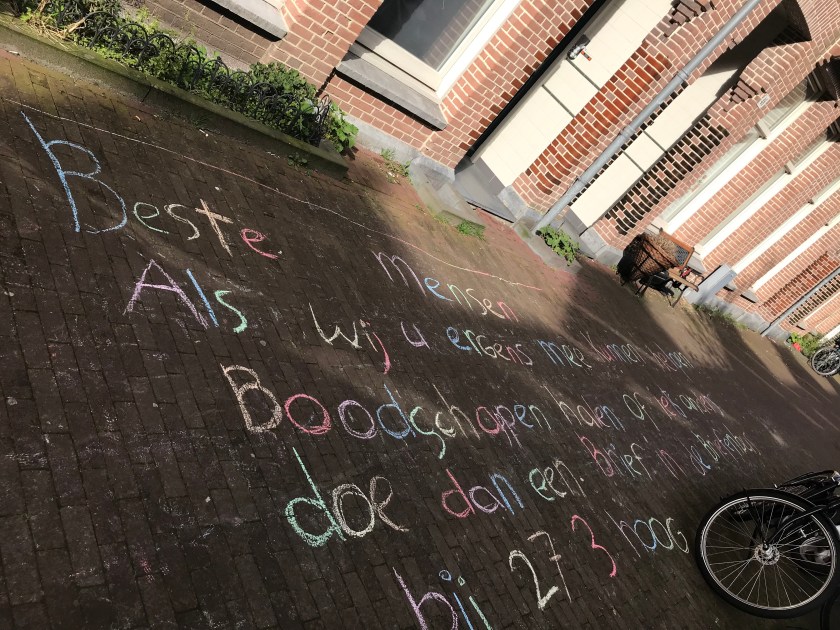 Beste mensen
Als wij u ergens mee kunnen helpen
Boodschappen halen of iets anders
doe dan een Brief in de Brievenbus
bij 27 3 hoog